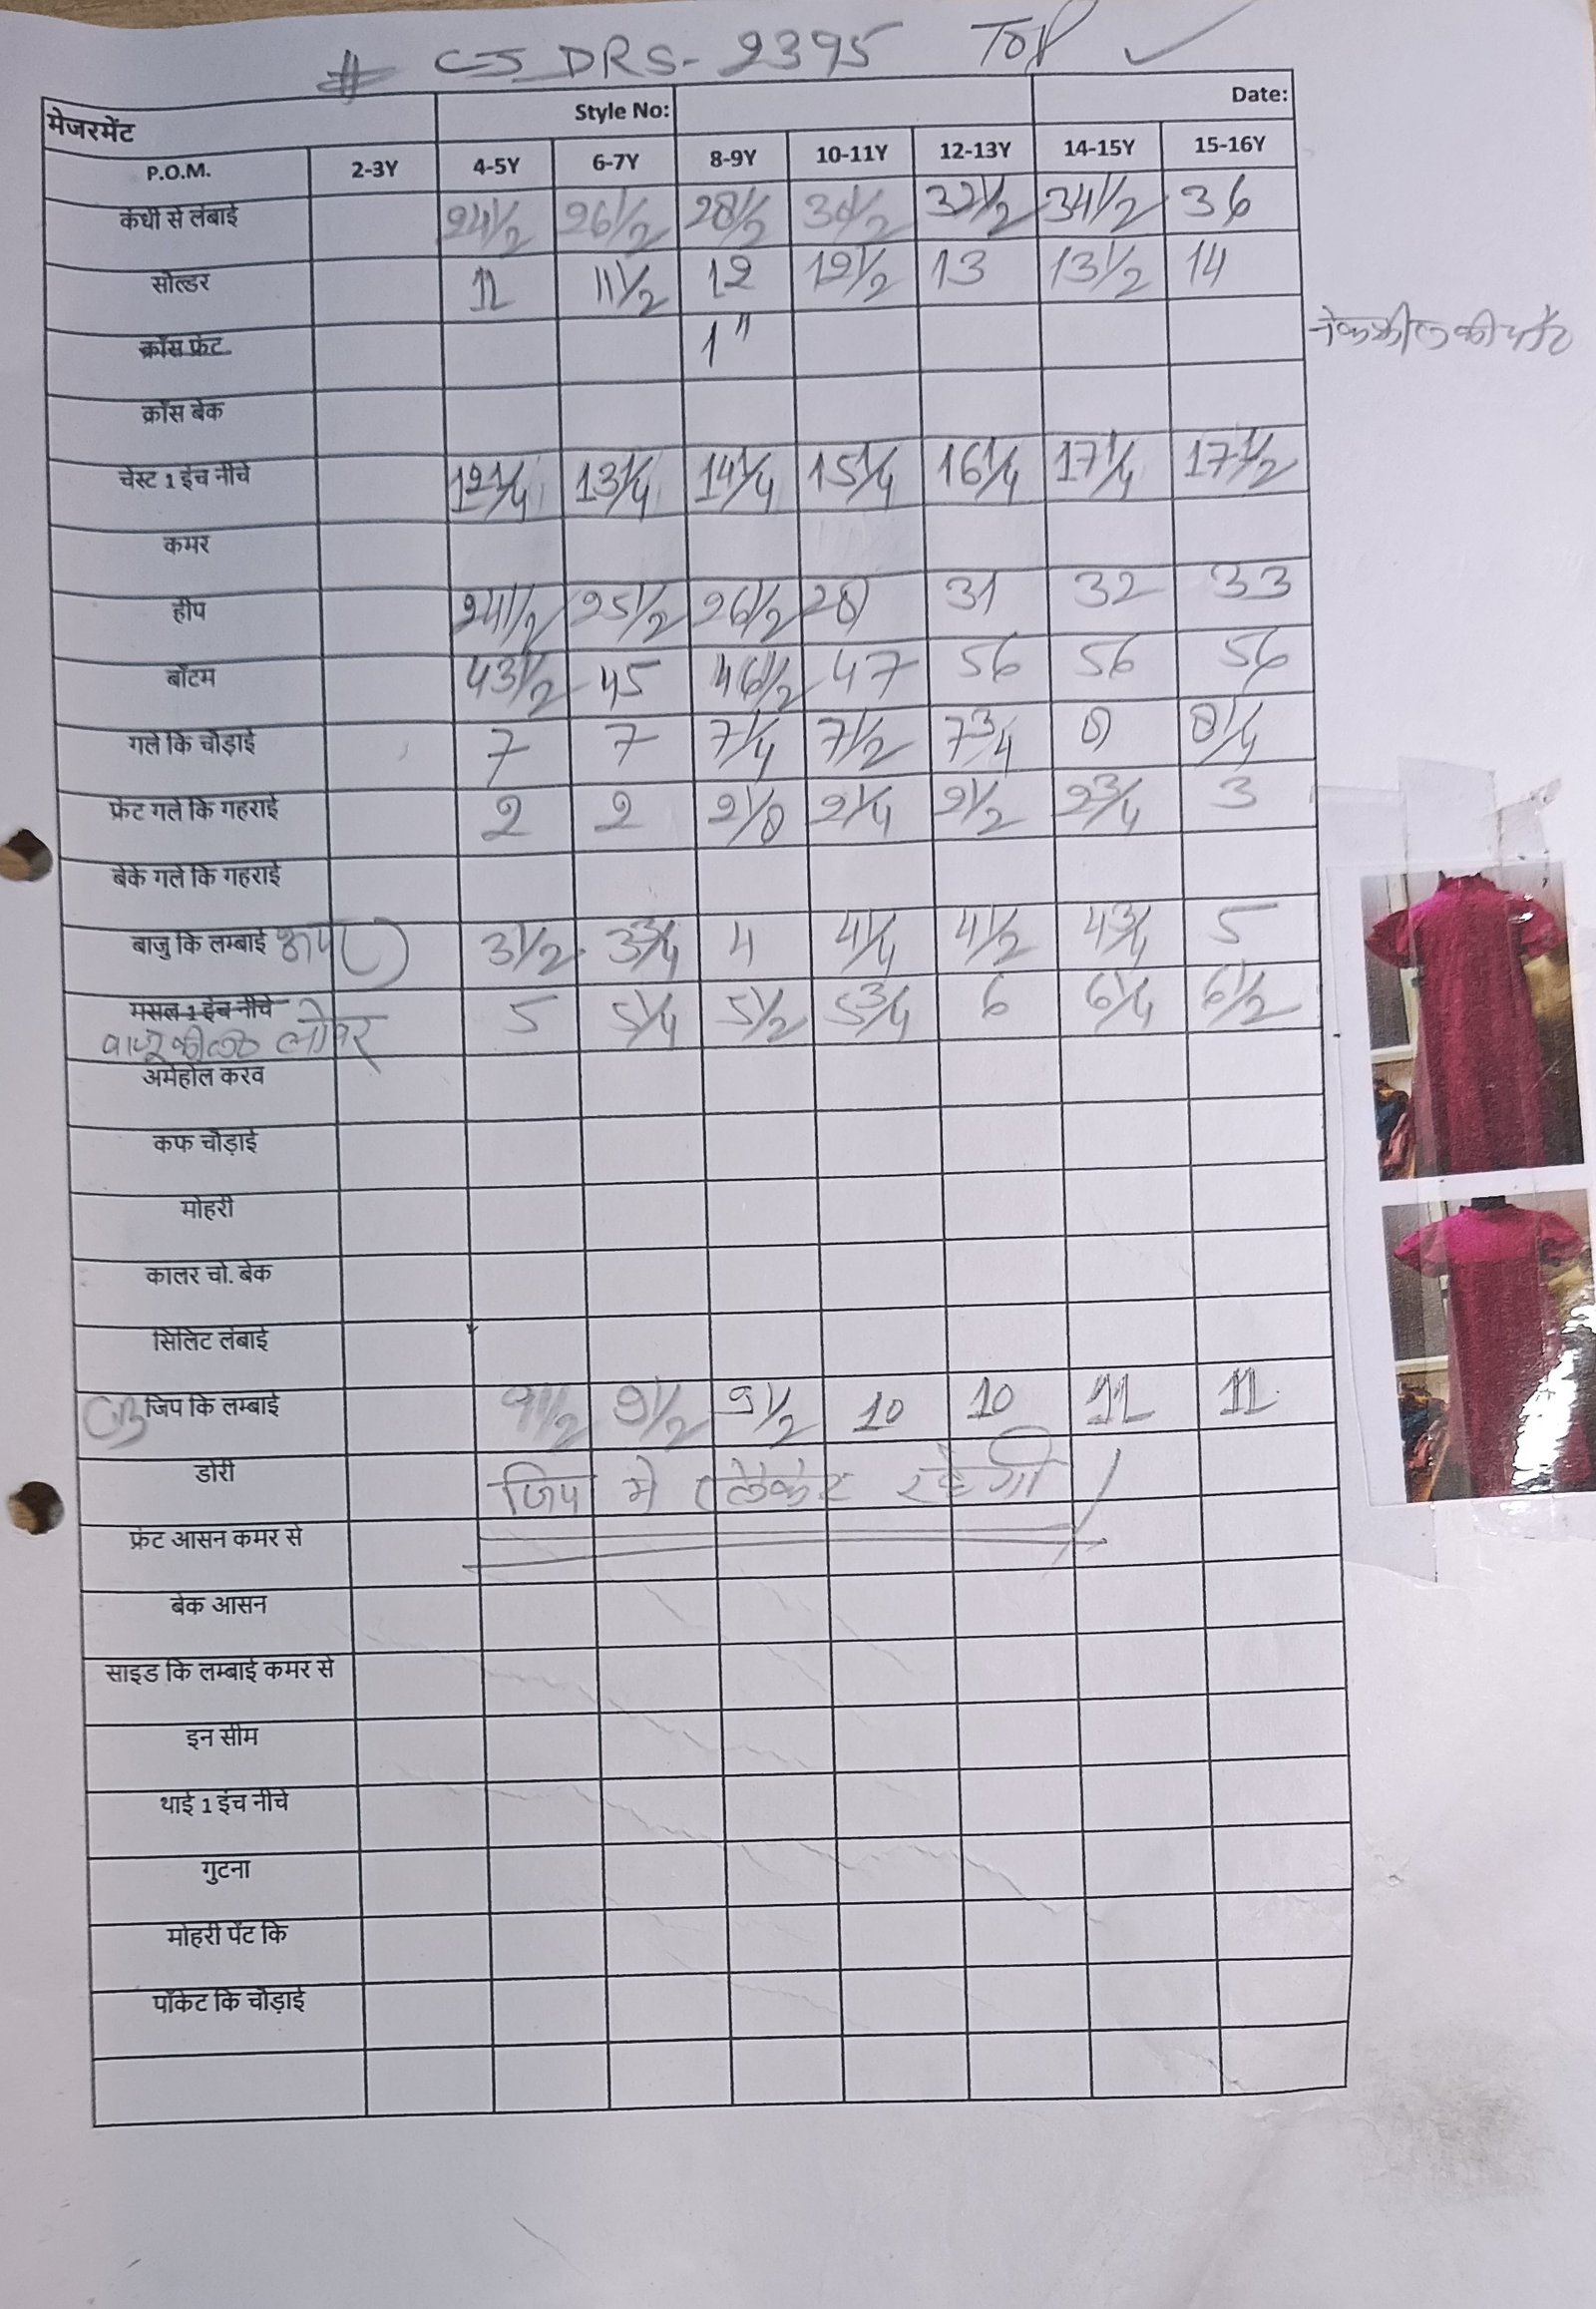 # CJ DRS-2395 TOP ✓
मेजरमेंट Style No: Date:
P.O.M. 2-3Y 4-5Y 6-7Y 8-9Y 10-11Y 12-13Y 14-15Y 15-16Y
कंधी से लंबाई 24 1/2 26 1/2 28 1/2 30 1/2 32 1/2 34 1/2 36
सोल्डर 11 11 1/2 12 12 1/2 13 13 1/2 14
क्रॉस फ्रंट 1"
क्रॉस बेक
चेस्ट 1 इंच नीचे 12 1/4 13 1/4 14 1/4 15 1/4 16 1/4 17 1/4 17 1/2
कमर
हीप 24 1/2 25 1/2 26 1/2 28 31 32 33
बॉटम 43 1/2 45 46 1/2 47 56 56 56
गले कि चौड़ाई 7 7 7 1/4 7 1/2 7 3/4 8 8 1/4
फ्रंट गले कि गहराई 2 2 2 1/8 2 1/4 2 1/2 2 3/4 3
बेके गले कि गहराई
बाजु कि लम्बाई 3 1/2 3 3/4 4 4 1/4 4 1/2 4 3/4 5
मसल 1 इंच नीचे 5 5 1/4 5 1/2 5 3/4 6 6 1/4 6 1/2
लोवर
अर्महोल करव
कफ चौड़ाई
मोहरी
कालर चो. बेक
सिलिट लंबाई
CB जिप कि लम्बाई 9 1/2 9 1/2 9 1/2 10 10 11 11
डोरी जिप मे रहेगी
फ्रंट आसन कमर से
बेक आसन
साइड कि लम्बाई कमर से
इन सीम
थाई 1 इंच नीचे
गुटना
मोहरी पेंट कि
पॉकेट कि चौड़ाई